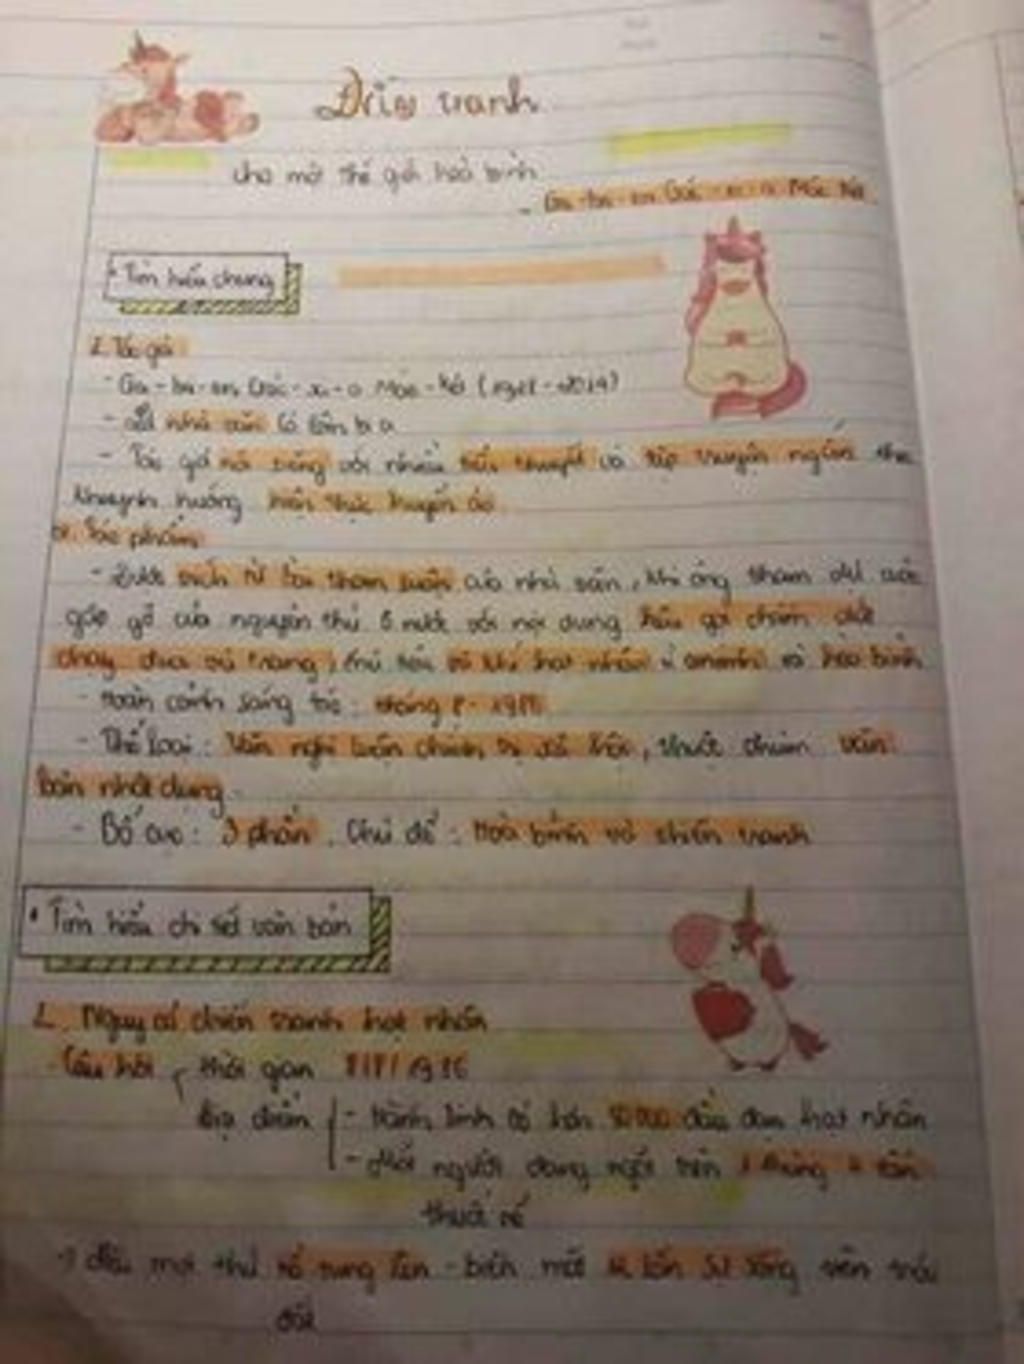 Đấu tranh
cho một thế giới hoà bình
- Ga-bri-en Gác-xi-a Mác Két
* Tìm hiểu chung
1. Tác giả
- Ga-bri-en Gác-xi-a Mác-két (1928-2014)
- nhà văn Cô lôm bi a
- Tác giả nổi tiếng với nhiều tiểu thuyết và tập truyện ngắn theo
khuynh hướng hiện thực huyền ảo
2. Tác phẩm
- Được trích từ bài tham luận của nhà văn, khi ông tham dự cuộc
gặp gỡ của nguyên thủ 6 nước với nội dung kêu gọi chấm dứt
chạy đua vũ trang, thủ tiêu vũ khí hạt nhân vì an ninh và hòa bình
- Hoàn cảnh sáng tác: tháng 8-1986
- Thể loại: Văn nghị luận chính trị xã hội, thuộc nhóm văn
bản nhật dụng.
- Bố cục: 3 phần. Chủ đề: Hoà bình và chiến tranh
* Tìm hiểu chi tiết văn bản
1. Nguy cơ chiến tranh hạt nhân
- Câu hỏi thời gian 8/8/1986
Địa điểm - Hành tinh có hơn 50 000 đầu đạn hạt nhân
- Mỗi người đang ngồi trên 1 thùng 4 tấn
thuốc nổ
→ mọi thứ nổ tung lên - biến mất 12 lần sự sống trên trái
đất